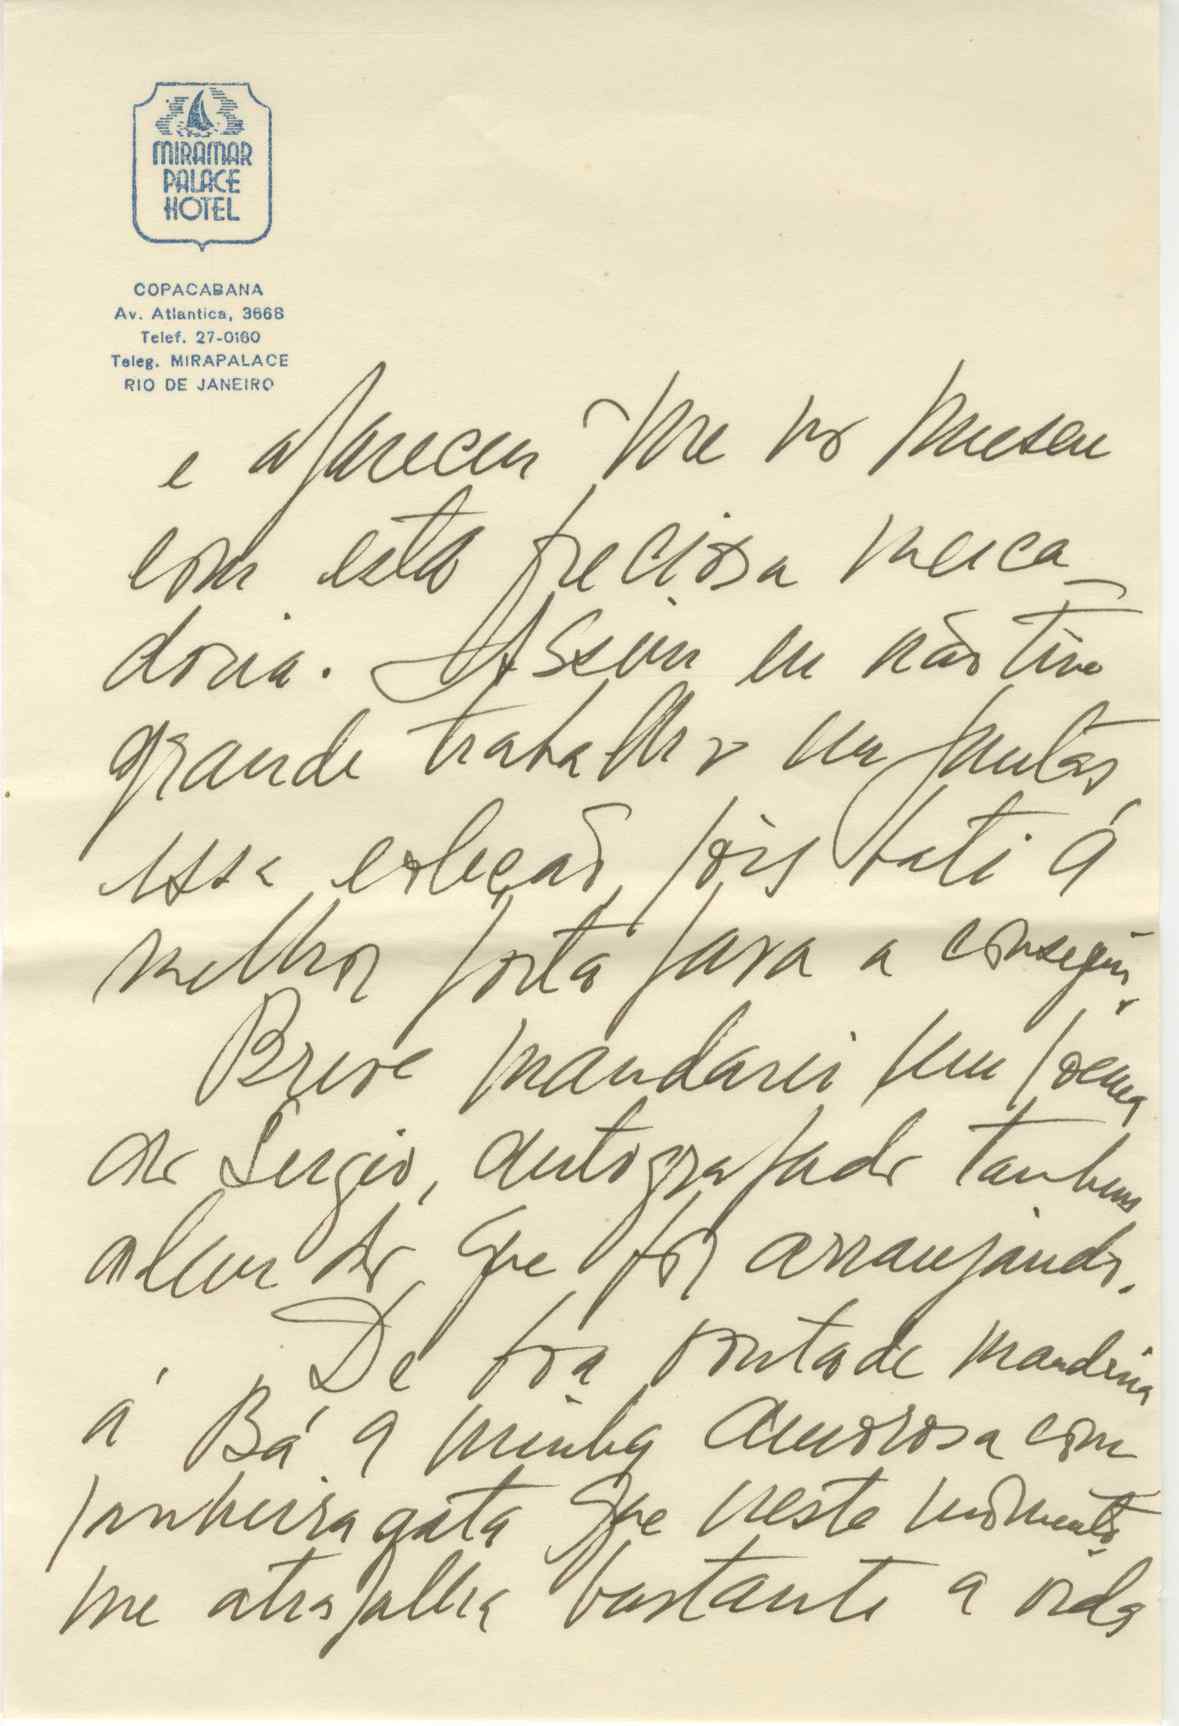 MIRAMAR
PALACE
HOTEL
COPACABANA
Av. Atlantica, 3668
Telef. 27-0160
Teleg. MIRAPALACE
RIO DE JANEIRO
e apareceu-me no Museu
com esta preciosa merca-
doria. Assim eu não tive
grande trabalho em juntar
essa coleção, pois bati á
melhor porta para a conseguir.
Breve mandarei um poema
do Sergio, autografado tambem
alem do que for arranjando.
De boa vontade mandaria
á Bá a minha amorosa com
panheira gata que neste momento
me atrapalha bastante a vida